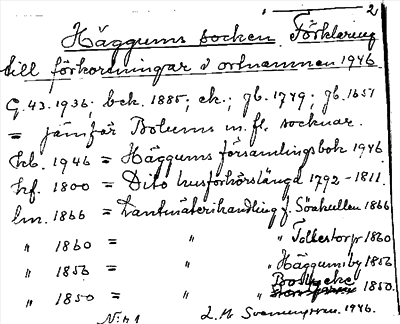 2
Häggums socken. Förklaring
till förkortningar i ortnamnen 1946
G. 43. 1936; beck. 1885; ek.; gb. 1779; gb. 1657
= jämför Bolums m. fl. socknar.
kb. 1946 = Häggums församlingsbok 1946
hf. 1800 = Dito husförhörslängd 1792-1811.
lm. 1866 = Lantmäterihandling f. Stenkullen 1866
" 1860 = " " Folketorp 1860
" 1856 = " " Häggum by 1856
" 1850 = " " Bossgården 1850.
N:o 1 L. M. Svennungsson. 1946.